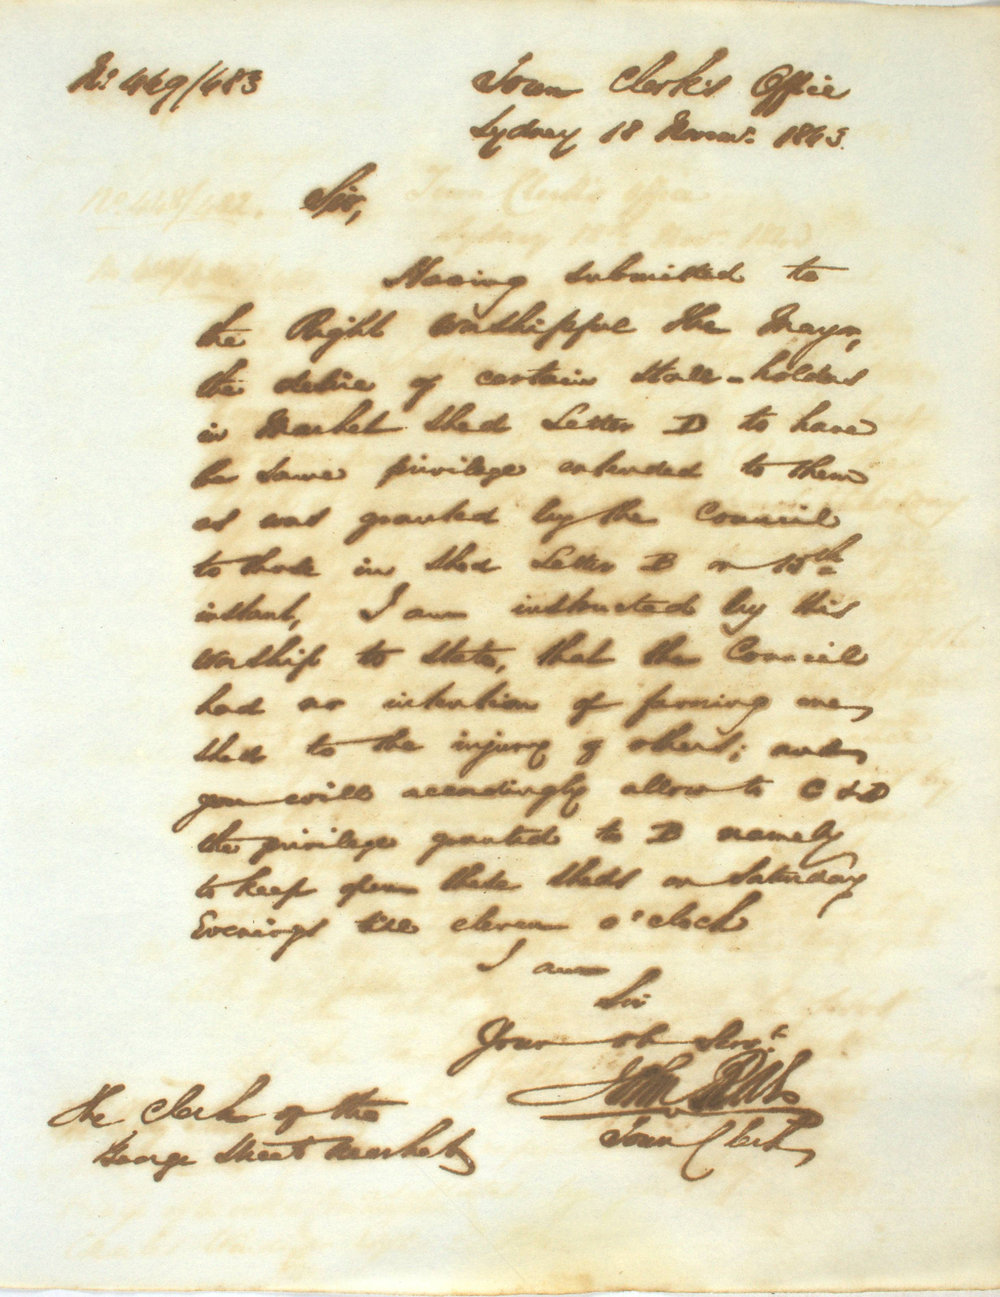 No. 449/483
Town Clerk's Office
Sydney 18 Novr. 1843.
Sir,
Having submitted to
the Right Worshipful the Mayor,
the desire of certain Stall-holders
in Market Shed Letter D to have
the same privilege extended to them
as was granted by the Council
to those in Shed Letter B on 13th
instant, I am instructed by His
Worship to state, that the Council
had no intention of favoring one
shed to the injury of others; and
you will accordingly allow to C & D
the privilege granted to B namely
to keep open these sheds on Saturday
Evenings till eleven o'clock
I am
Sir
Your ob Servt.
John
Town Clerk
The Clerk of the
George Street Market
No. 448/482.
Town Clerk's Office
Sydney 18th Novr. 1843